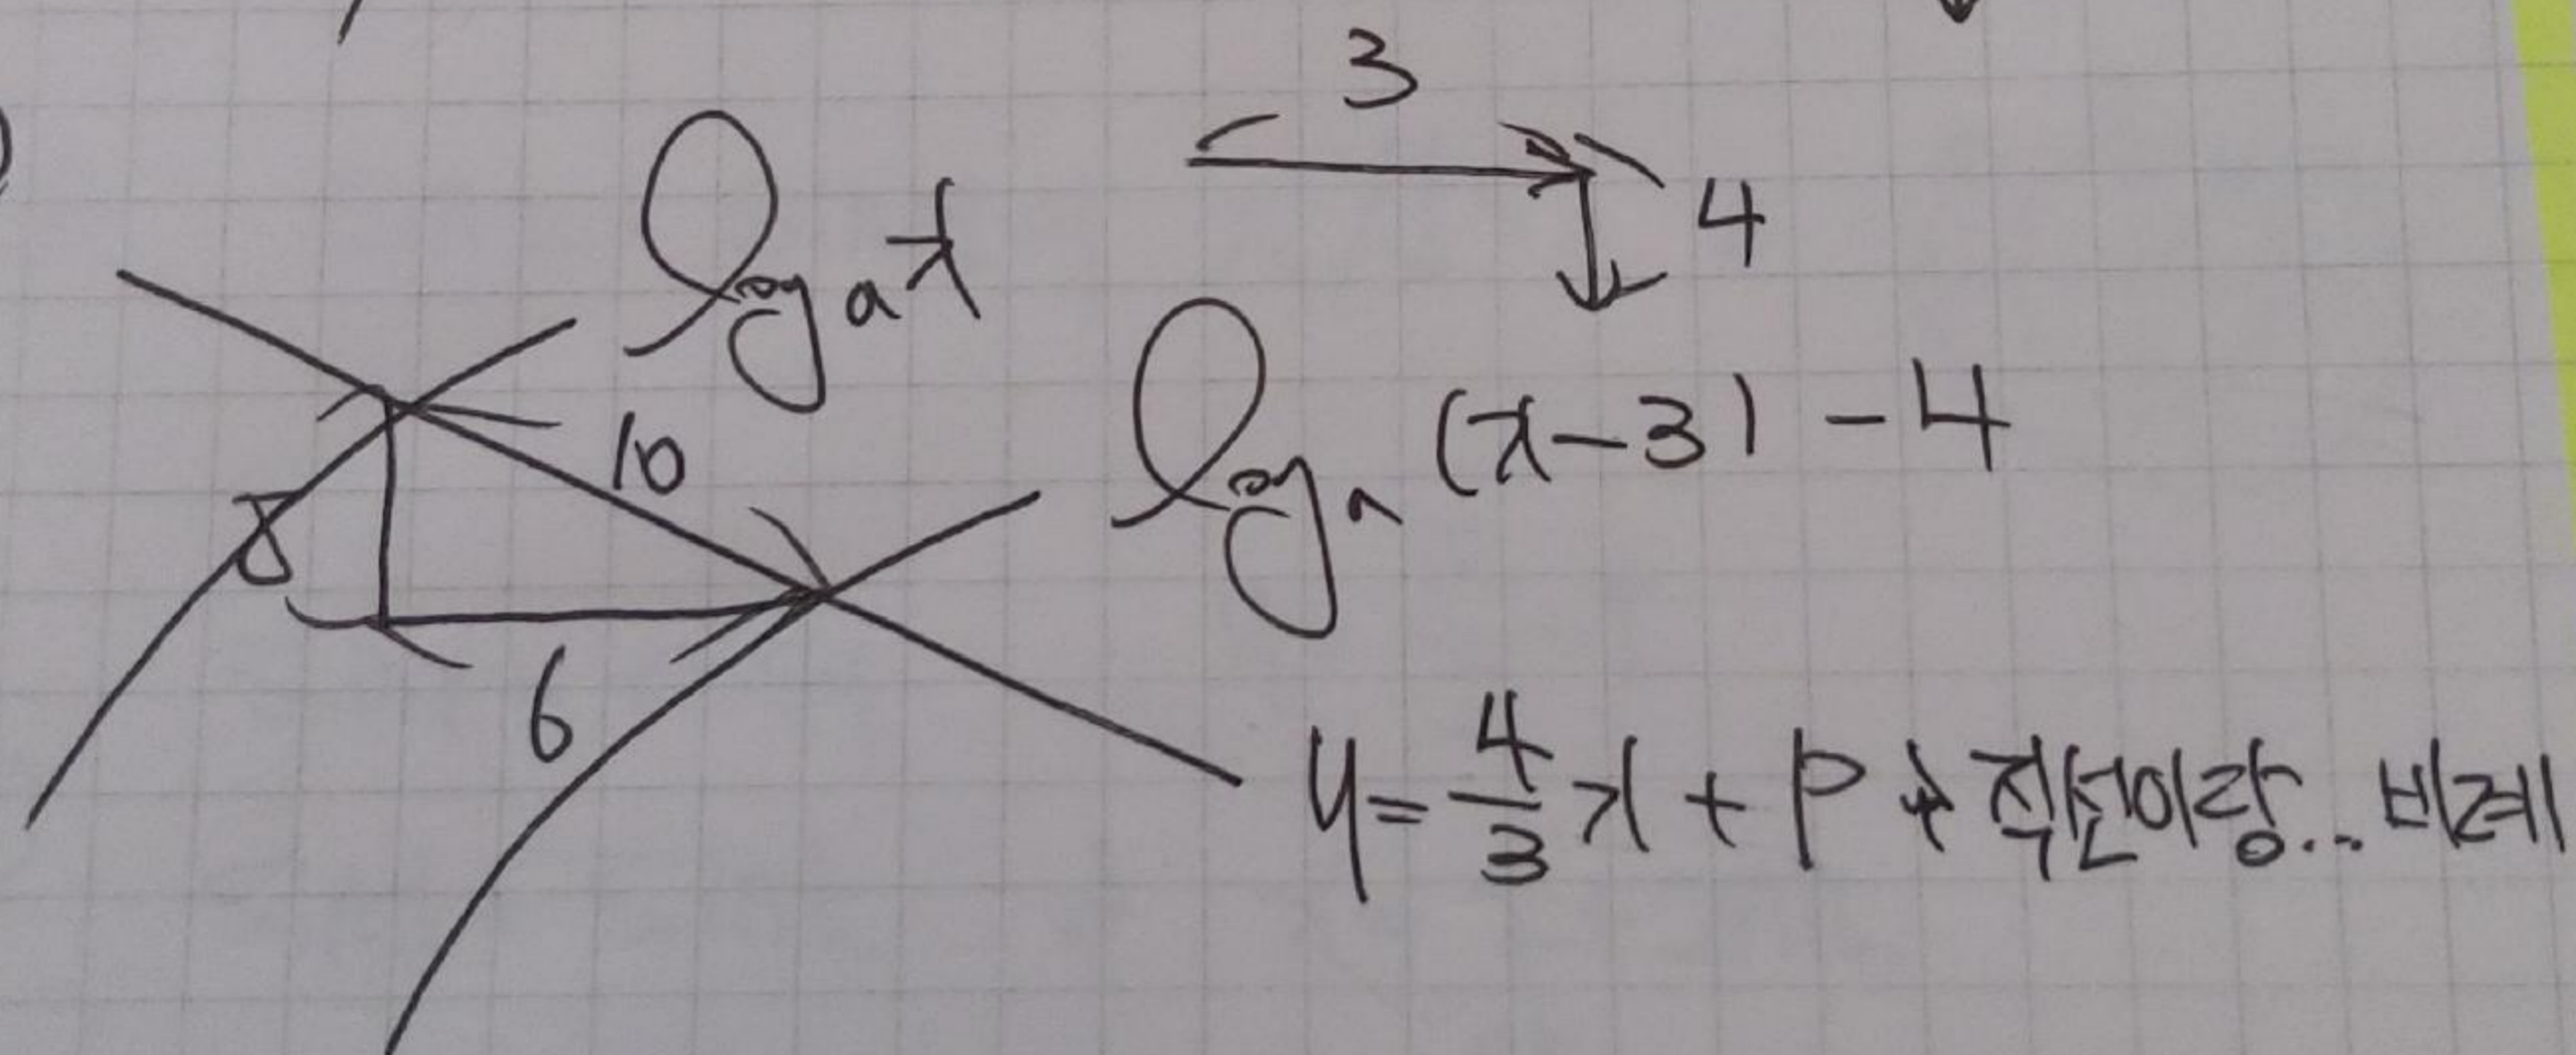 3
4
log_a x
log_a (x-3) -4
10
8
6
y = 4/3 x + p 직선이랑... 비례